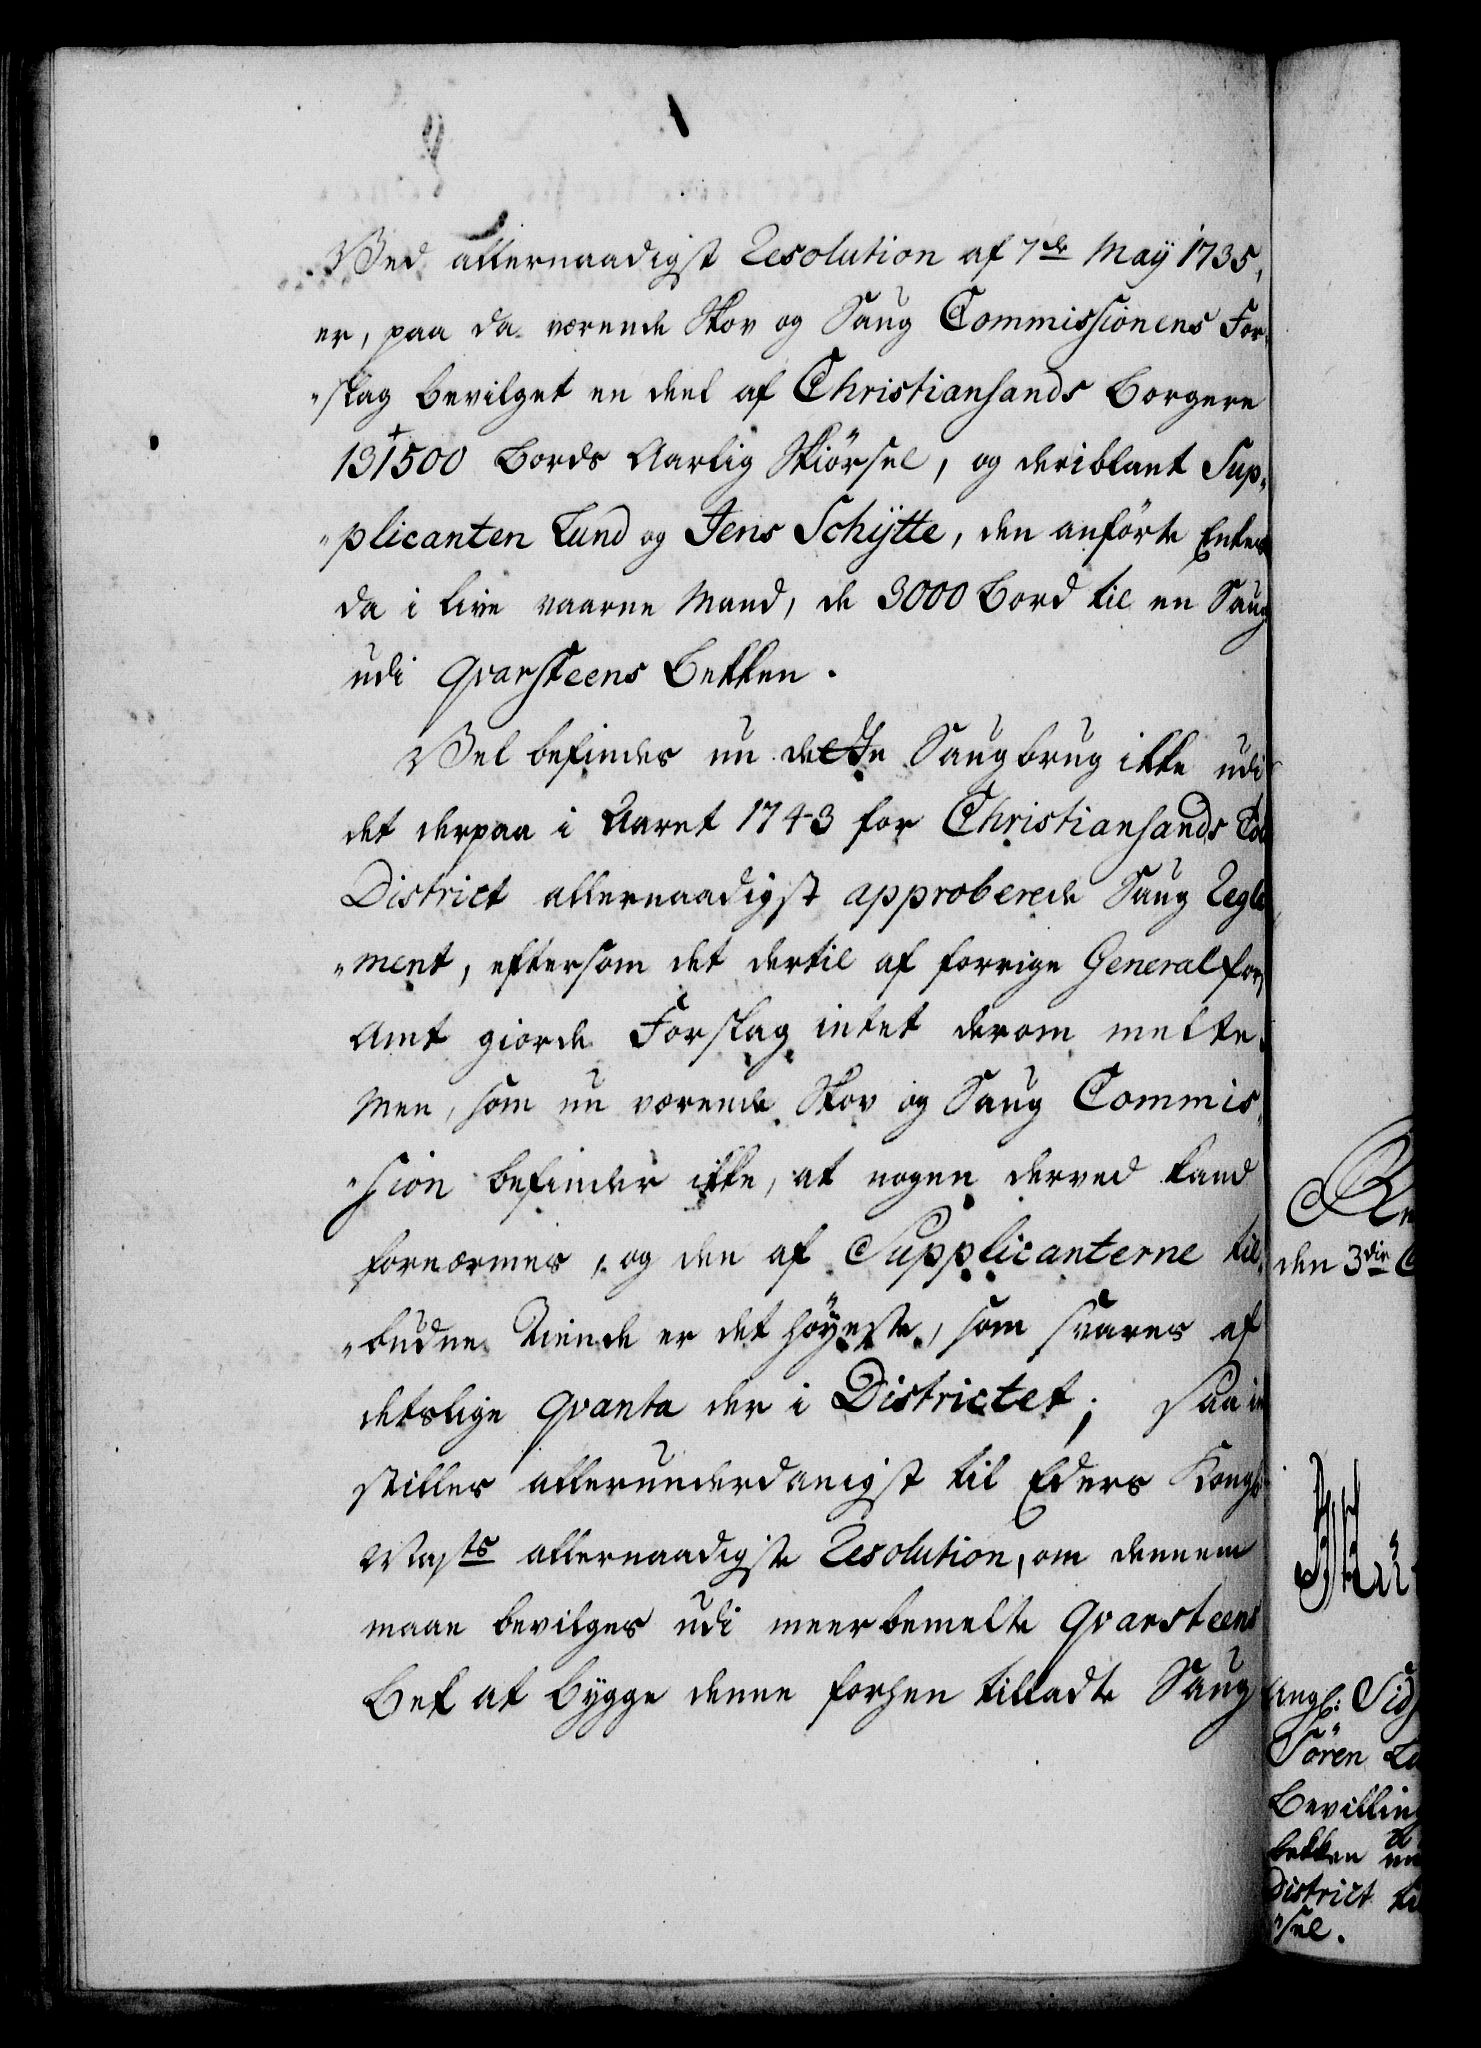 Ved allernaadigst Resolution af 7de Maÿ 1735,
er, paa da værende Skov og Saug Commissionens For-
"slag bevilget en deel af Christiansands Borgere
131500 Bords Aarlig Skiörsel, og deriblant Sup-
"plicanten Lund og Jens Schÿtte, den anförte Enkes
da i live vaarne Mand, de 3000 Bord til en Saug
udi Qvarsteens Bekken.
Vel befindes nu dette Saugbrug ikke udi
det derpaa i Aaret 1743 for Christiansands Told
District allernaadigst approberede Saug Regle
"ment, eftersom det dertil af forrige General forst
Amt giorde Forslag intet derom melte.
Men, som nu værende Skov og Saug Commis-
"sion befinder ikke, at nogen derved kand
fornærmes, og den af Supplicanterne til-
"budne Tiende er det höÿeste, som svares af
detslige Qvanta der i Districtet; Saa in
stilles allerunderdanigst til Eders Kongl.
Maÿts allernaadigste Resolution, om dennem
maae bevilges udi meerbemelte Qvarsteens
Bek at bygge denne forhen tilladte Saug
den 3die
Angl: Sid
Sören Lu
Bevilling
bekken
District
"sel.